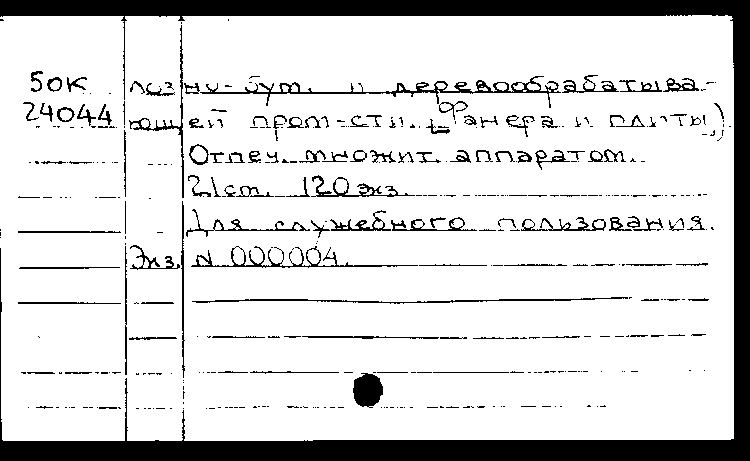 50К лозно-бум. и деревообрабатыва-
24044 ющей пром-сти. Фанера и плиты)
Отпеч. множит. аппаратом.
21 cm. 120 экз.
Для служебного пользования.
Экз. N 000004.